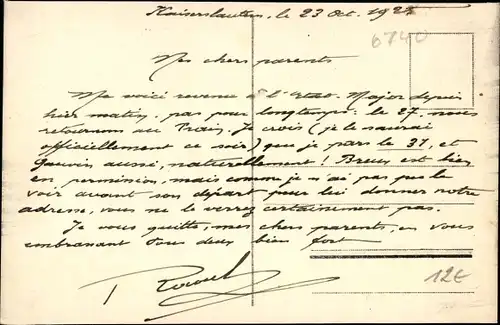 Kaiserslautern, le 23 Oct. 192
6740
Mes chers parents
Me voici revenu à l'Etat-Major depuis
hier matin, pas pour longtemps: le 27, nous
retournons au Train. Je crois (je le saurai
officiellement ce soir) que je pars le 31, et
Gauvin aussi, naturellement! Breux est bien
en permission, mais comme je n'ai pas pu le
voir avant son départ pour lui donner notre
adresse, vous ne le verrez certainement pas.
Je vous quitte, mes chers parents, en vous
embrassant tous deux bien fort
12€